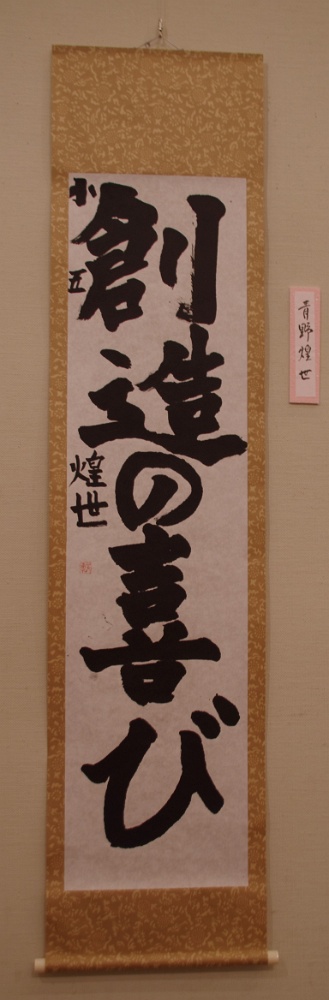 創造の喜び
小五
煌世
青野煌世